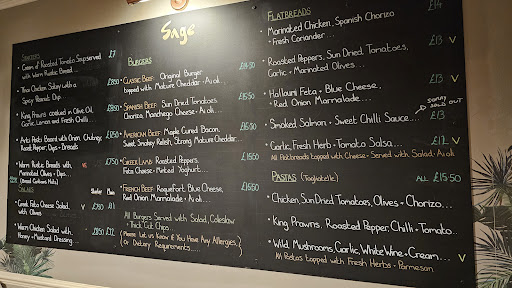 Sage
STARTERS
Cream of Roasted Tomato Soup served £7
with Warm Rustic Bread...
Thai Chicken Satay with a
Spicy Peanut Dip...
King Prawns cooked in Olive Oil,
Garlic, Lemon and Fresh Chilli...
Anti Pasti Board with Onion Chutney,
Roast Pepper, Dips + Breads
Warm Rustic Breads with £7.50
Marinated Olives + Dips...
SALADS Starter Main
Greek Feta Cheese Salad V
with Olives
Warm Chicken Salad with £12
Honey + Mustard Dressing...
BURGERS
CLASSIC BEEF: Original Burger £14.50
topped with Mature Cheddar. Aioli...
SPANISH BEEF: Sun Dried Tomatoes £15.50
Chorizo, Manchego Cheese. Aioli...
AMERICAN BEEF: Maple Cured Bacon, £15.50
Sweet Smokey Relish, Strong Mature Cheddar...
GREEK LAMB: Roasted Peppers, £15.50
Feta Cheese, Minted Yoghurt...
FRENCH BEEF: Roquefort, Blue Cheese, £15.50
Red Onion Marmalade. Aioli...
All Burgers Served with Salad, Coleslaw
+ Thick Cut Chips...
(Please Let us Know if You Have Any Allergies
Or Dietary Requirements...)
FLATBREADS
Marinated Chicken, Spanish Chorizo £14
+ Fresh Coriander...
Roasted Peppers, Sun Dried Tomatoes, £13 V
Garlic + Marinated Olives...
Halloumi, Feta + Blue Cheese, £13 V
Red Onion Marmalade...
SORRY SOLD OUT
Smoked Salmon + Sweet Chilli Sauce... £13
Garlic, Fresh Herb + Tomato Salsa... £12 V
All Flatbreads topped with Cheese - Served with Salad. Aioli
PASTAS (Tagliatelle) ALL £15.50
Chicken, Sun Dried Tomatoes, Olives + Chorizo...
King Prawns, Roasted Pepper, Chilli + Tomato...
Wild Mushrooms, Garlic, White Wine + Cream... V
All Pastas topped with Fresh Herbs - Parmesan